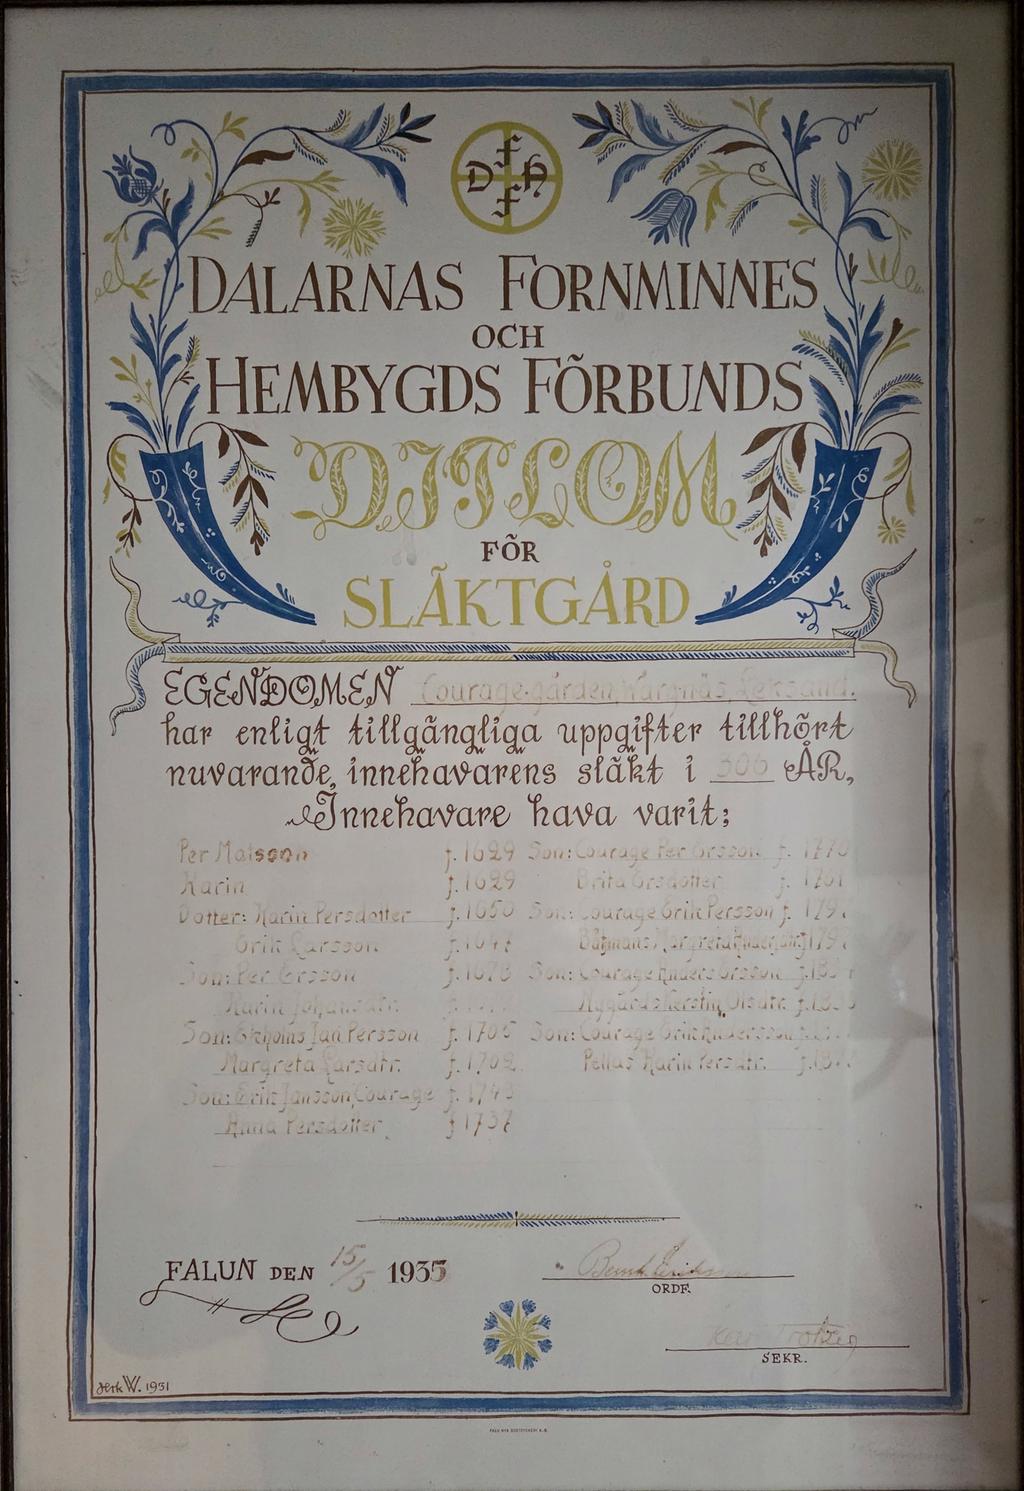 D F H F
DALARNAS FORNMINNES
OCH
HEMBYGDS FÖRBUNDS
DIPLOM
FÖR
SLÄKTGÅRD
EGENDOMEN Courage-gården, Wargnäs, Leksand.
har enligt tillgängliga uppgifter tillhört
nuvarande innehavarens släkt i 306 ÅR,
Innehavare hava varit;
Per Matsson f. 1629
Karin f. 1629
Dotter: Karin Persdotter f. 1650
Erik Larsson f. 1647
Son: Per Ersson f. 1678
Karin Johansdtr.
Son: Ekholms Jan Persson f. 1705
Margreta Larsdtr. f. 1702
Son: Erik Jansson, Courage f. 1743
Anna Persdotter f 1737
Son: Courage Per Ersson f. 1770
Brita Ersdotter f. 1761
Son: Courage Erik Persson f. 179
Båtmans Margreta Andersdtr. f 179
Son: Courage Anders Ersson f. 18
Nygårds Kerstin Olsdtr. f. 18
Son: Courage Erik Andersson f.
Pellas Karin Persdtr. f. 187
FALUN DEN 15/5 1935
Bernh. Eriksson
ORDF.
Trotzig
SEKR.
W. 1931
FALU NYA BOKTRYCKERI A.-B.